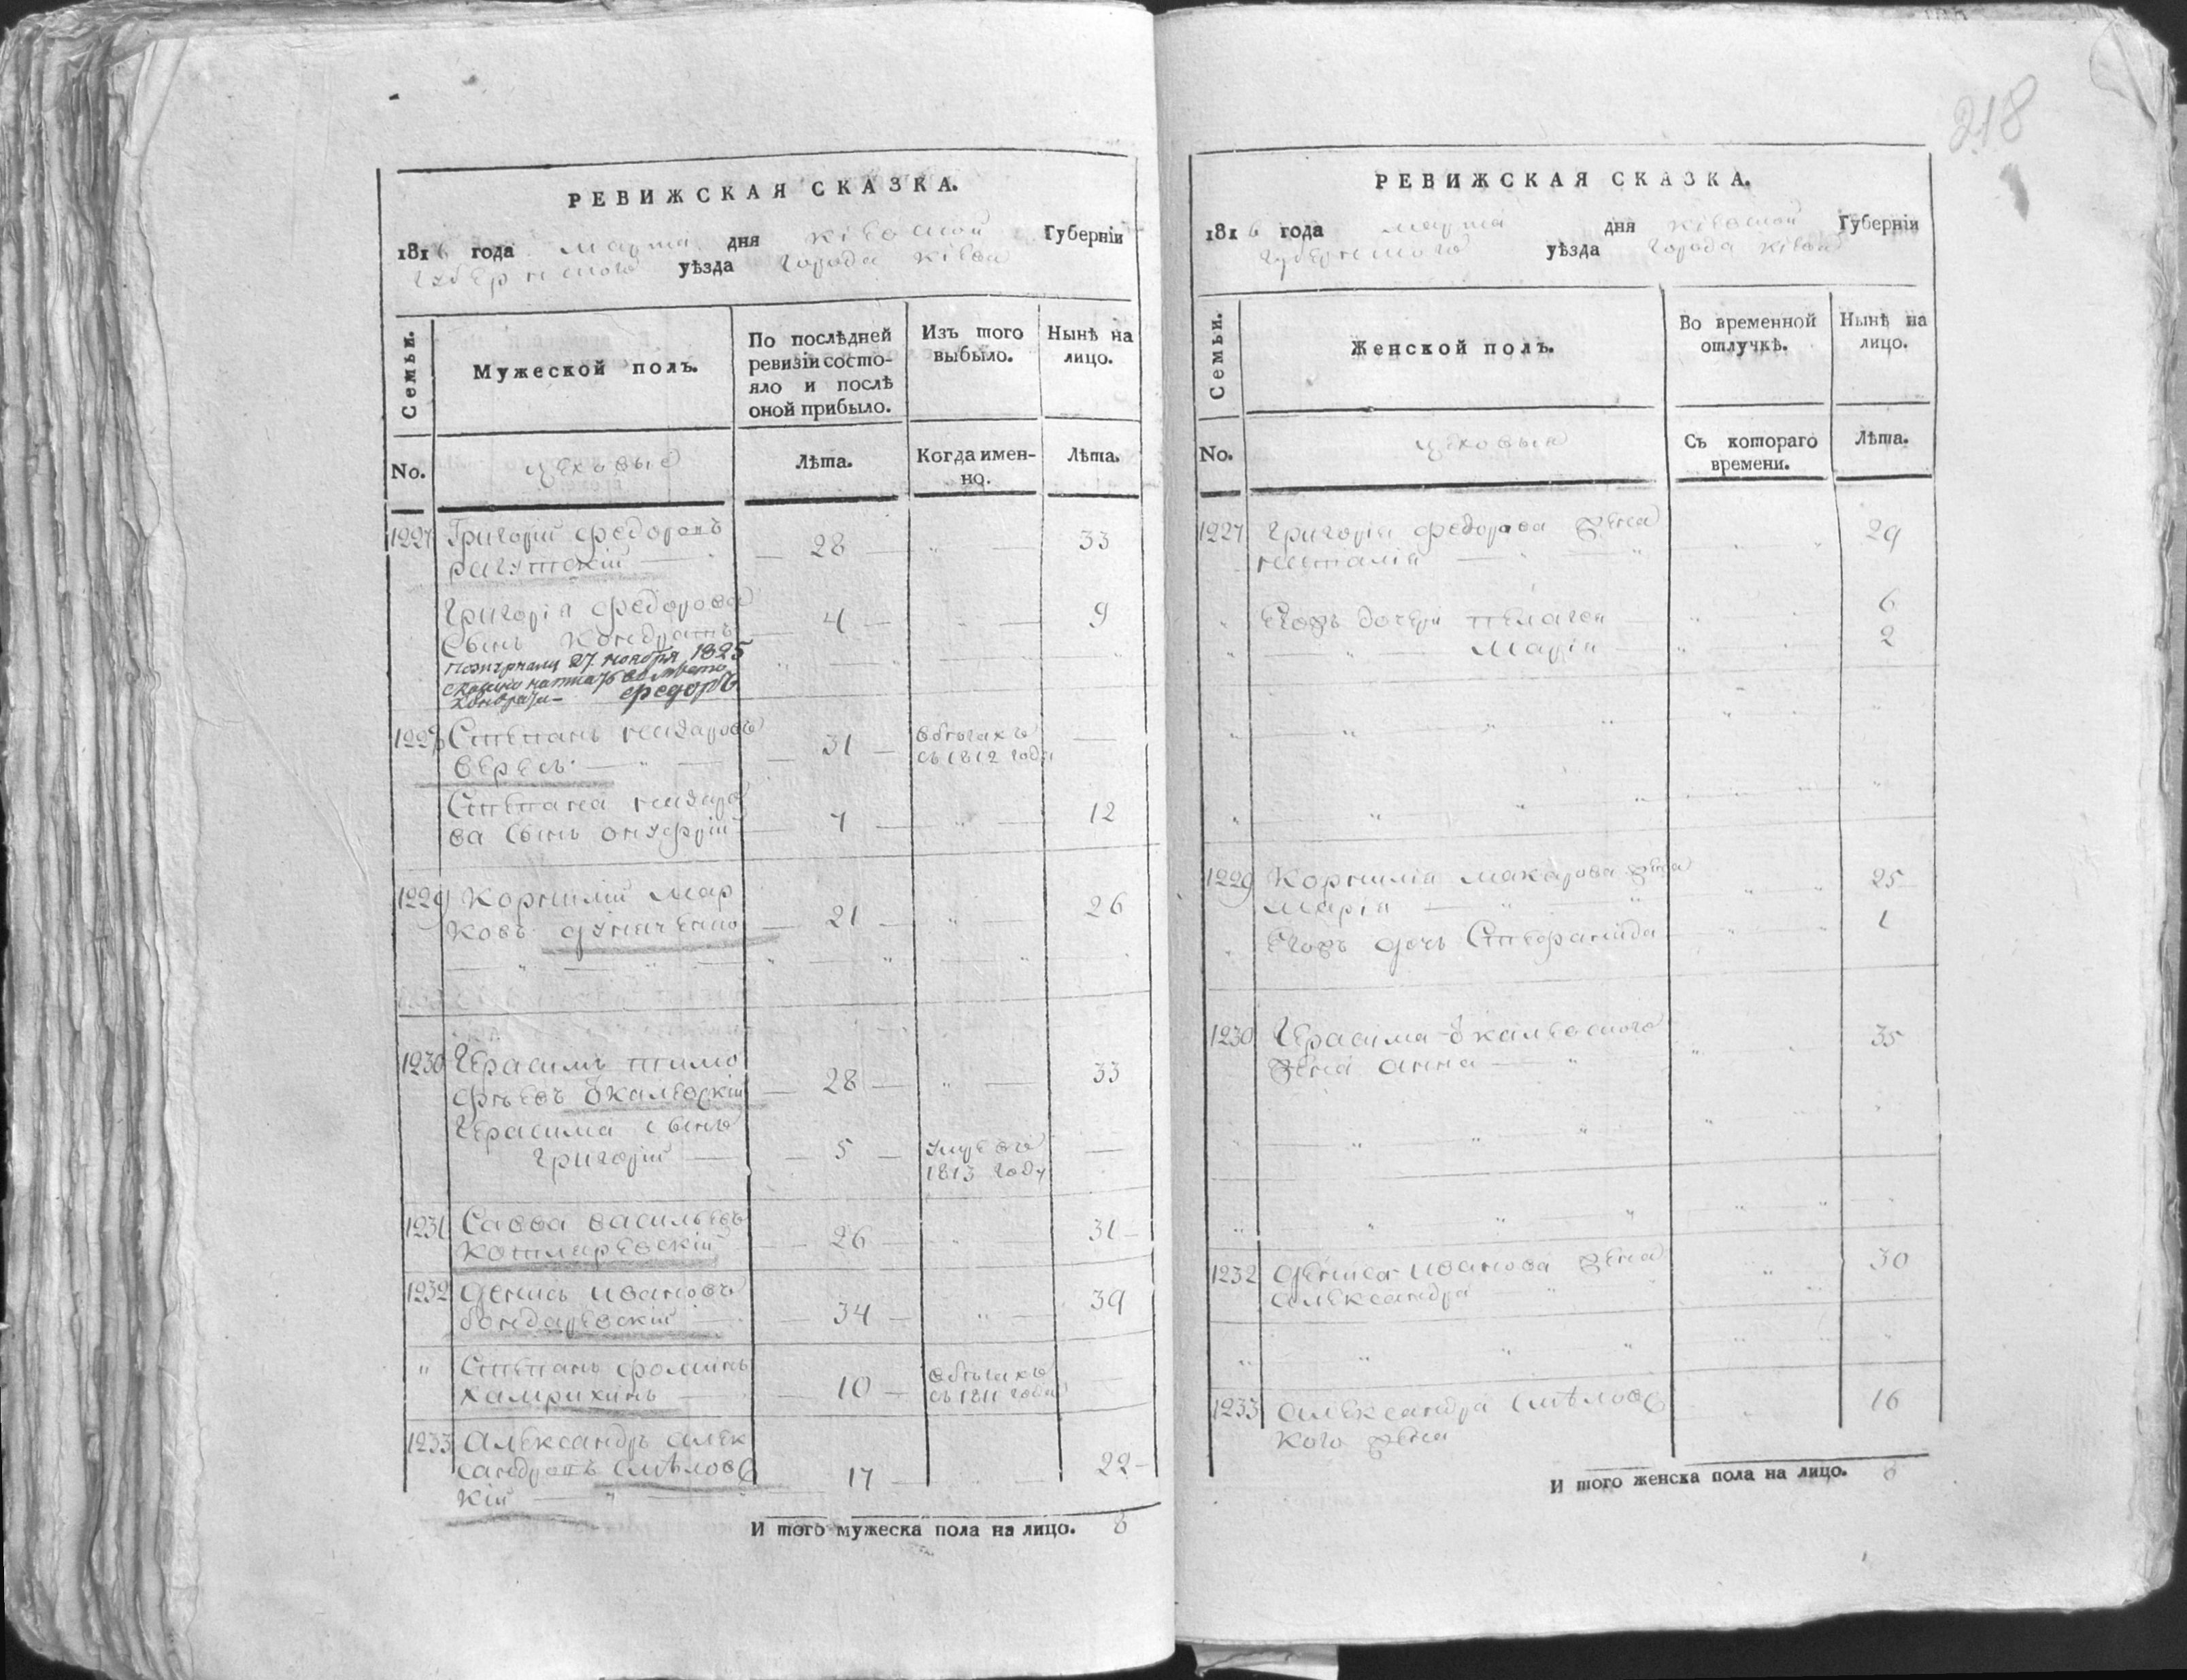 218
РЕВИЖСКАЯ СКАЗКА.
1816 года марта дня Кіевской Губерніи
Губернскаго уѣзда города Кіева
Семьи.
Мужеской полъ.
По послѣдней ревизіи состояло и послѣ оной прибыло.
Изъ того выбыло.
Нынѣ на лицо.
No.
цеховые
Лѣта.
Когда именно.
Лѣта.
1227 Григорій Федоровъ
28 33
Григорія Федорова
сынъ Кондратъ 4 9
27 ноября 1825
Федоръ
1228 Степанъ Назаровъ
Вересъ 31 въ бѣгахъ съ 1812 года
Степана Назаро
ва сынъ Онуфрій 7 12
1229 Корнилій Мар
ковъ 21 26
1230 Герасимъ Тимо
фѣевъ 28 33
Герасима сынъ
Григорій 5 умре въ 1813 году
1231 Савва Васильевъ
Котляревскій 26 31
1232 Денисъ Ивановъ
Бондаревскій 34 39
" Степанъ Фоминъ
10 въ бѣгахъ съ 1811 года
1233 Александръ Алек
сандровъ Смѣловс
кій 17 22
И того мужеска пола на лицо. 8
РЕВИЖСКАЯ СКАЗКА.
1816 года марта дня Кіевской Губерніи
Губернскаго уѣзда города Кіева
Семьи.
Женской полъ.
Во временной отлучкѣ.
Нынѣ на лицо.
No.
цеховыя
Съ котораго времени.
Лѣта.
1227 Григорія Федорова жена
Наталія 29
Его жъ дочери Пелагея 6
Марія 2
1229 Корнилія Макарова жена
Марія 25
Его жъ дочь Стефанида 1
1230 Герасима
жена Анна 35
1232 Дениса Иванова жена
Александра 30
1233 Александра Смѣловс
кого жена 16
И того женска пола на лицо. 8